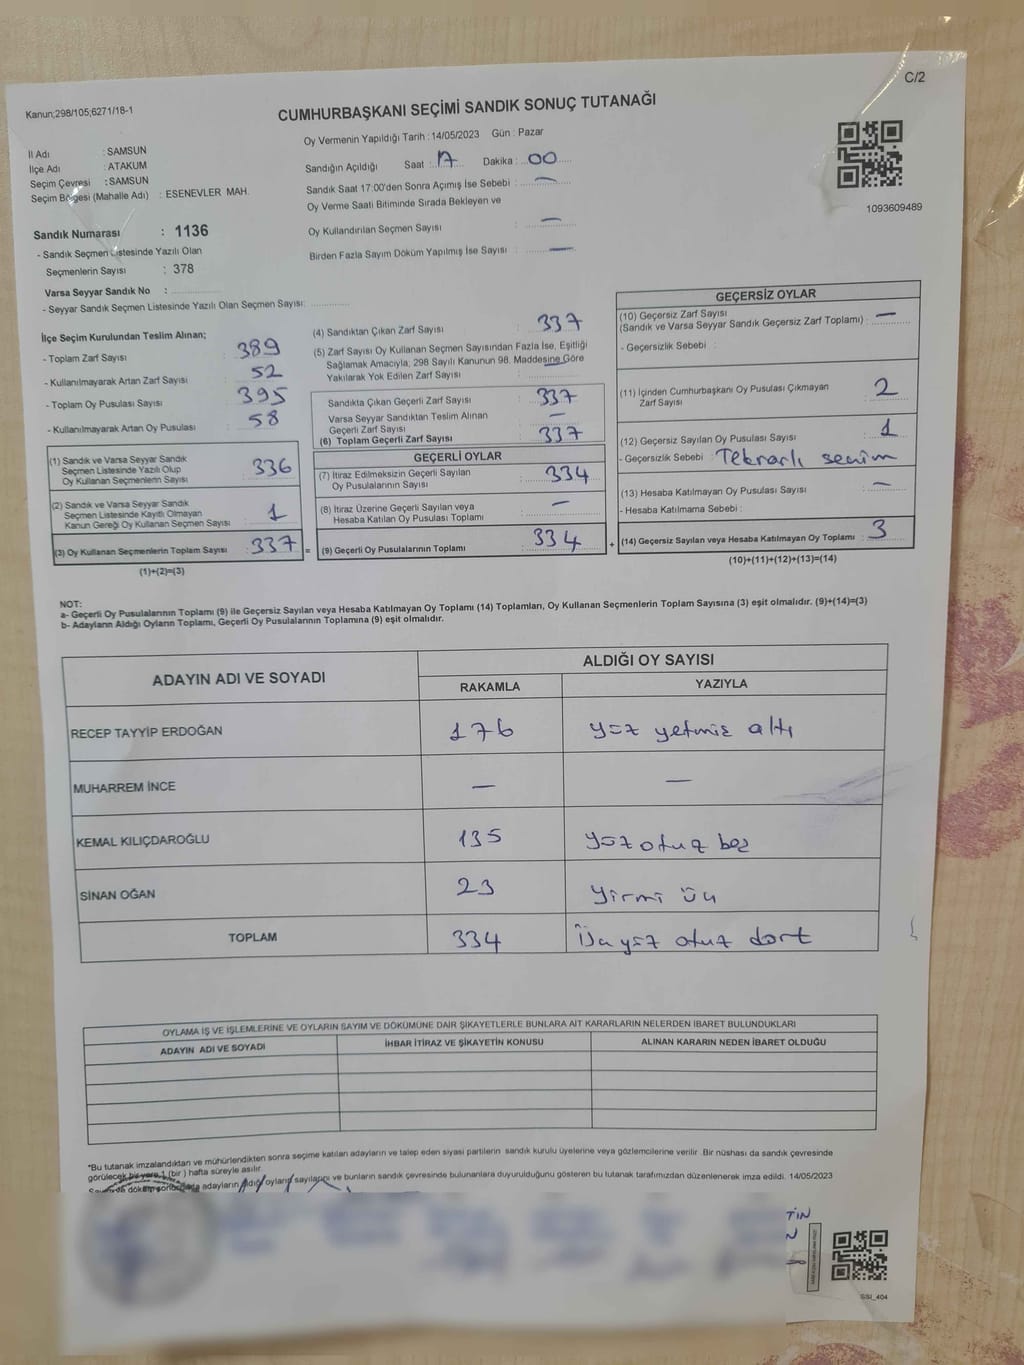 C/2
Kanun;298/105;6271/18-1
CUMHURBAŞKANI SEÇİMİ SANDIK SONUÇ TUTANAĞI
Oy Vermenin Yapıldığı Tarih : 14/05/2023 Gün : Pazar
İl Adı : SAMSUN
İlçe Adı : ATAKUM
Seçim Çevresi : SAMSUN
Seçim Bölgesi (Mahalle Adı) : ESENEVLER MAH.
Sandığın Açıldığı Saat : 17 Dakika : 00
Sandık Saat 17:00'den Sonra Açımış İse Sebebi : —
Oy Verme Saati Bitiminde Sırada Bekleyen ve
Oy Kullandırılan Seçmen Sayısı : —
Birden Fazla Sayım Döküm Yapılmış İse Sayısı : —
1093609489
Sandık Numarası : 1136
- Sandık Seçmen Listesinde Yazılı Olan
Seçmenlerin Sayısı : 378
Varsa Seyyar Sandık No :
- Seyyar Sandık Seçmen Listesinde Yazılı Olan Seçmen Sayısı:
İlçe Seçim Kurulundan Teslim Alınan;
- Toplam Zarf Sayısı : 389
- Kullanılmayarak Artan Zarf Sayısı : 52
- Toplam Oy Pusulası Sayısı : 395
- Kullanılmayarak Artan Oy Pusulası : 58
(1) Sandık ve Varsa Seyyar Sandık
Seçmen Listesinde Yazılı Olup
Oy Kullanan Seçmenlerin Sayısı : 336
(2) Sandık ve Varsa Seyyar Sandık
Seçmen Listesinde Kayıtlı Olmayan
Kanun Gereği Oy Kullanan Seçmen Sayısı : 1
(3) Oy Kullanan Seçmenlerin Toplam Sayısı : 337 =
(1)+(2)=(3)
(4) Sandıktan Çıkan Zarf Sayısı : 337
(5) Zarf Sayısı Oy Kullanan Seçmen Sayısından Fazla İse, Eşitliği
Sağlamak Amacıyla, 298 Sayılı Kanunun 98. Maddesine Göre
Yakılarak Yok Edilen Zarf Sayısı : —
Sandıkta Çıkan Geçerli Zarf Sayısı : 337
Varsa Seyyar Sandıktan Teslim Alınan
Geçerli Zarf Sayısı : —
(6) Toplam Geçerli Zarf Sayısı : 337
GEÇERLİ OYLAR
(7) İtiraz Edilmeksizin Geçerli Sayılan
Oy Pusulalarının Sayısı : 334
(8) İtiraz Üzerine Geçerli Sayılan veya
Hesaba Katılan Oy Pusulası Toplamı : —
(9) Geçerli Oy Pusulalarının Toplamı : 334 +
GEÇERSİZ OYLAR
(10) Geçersiz Zarf Sayısı
(Sandık ve Varsa Seyyar Sandık Geçersiz Zarf Toplamı) : —
- Geçersizlik Sebebi :
(11) İçinden Cumhurbaşkanı Oy Pusulası Çıkmayan
Zarf Sayısı : 2
(12) Geçersiz Sayılan Oy Pusulası Sayısı : 1
- Geçersizlik Sebebi : Tekrarlı secim
(13) Hesaba Katılmayan Oy Pusulası Sayısı : —
- Hesaba Katılmama Sebebi :
(14) Geçersiz Sayılan veya Hesaba Katılmayan Oy Toplamı : 3
(10)+(11)+(12)+(13)=(14)
NOT:
a- Geçerli Oy Pusulalarının Toplamı (9) ile Geçersiz Sayılan veya Hesaba Katılmayan Oy Toplamı (14) Toplamları, Oy Kullanan Seçmenlerin Toplam Sayısına (3) eşit olmalıdır. (9)+(14)=(3)
b- Adayların Aldığı Oyların Toplamı, Geçerli Oy Pusulalarının Toplamına (9) eşit olmalıdır.
ADAYIN ADI VE SOYADI
ALDIĞI OY SAYISI
RAKAMLA YAZIYLA
RECEP TAYYİP ERDOĞAN 176 yüz yetmiş altı
MUHARREM İNCE — —
KEMAL KILIÇDAROĞLU 135 yüz otuz beş
SİNAN OĞAN 23 yirmi üç
TOPLAM 334 Üç yüz otuz dört
OYLAMA İŞ VE İŞLEMLERİNE VE OYLARIN SAYIM VE DÖKÜMÜNE DAİR ŞİKAYETLERLE BUNLARA AİT KARARLARIN NELERDEN İBARET BULUNDUKLARI
ADAYIN ADI VE SOYADI İHBAR İTİRAZ VE ŞİKAYETİN KONUSU ALINAN KARARIN NEDEN İBARET OLDUĞU
*Bu tutanak imzalandıktan ve mühürlendikten sonra seçime katılan adayların ve talep eden siyasi partilerin sandık kurulu üyelerine veya gözlemcilerine verilir .Bir nüshası da sandık çevresinde
görülecek bir yere 1 (bir ) hafta süreyle asılır.
adayların aldığı oyların sayılarını ve bunların sandık çevresinde bulunanlara duyurulduğunu gösteren bu tutanak tarafımızdan düzenlenerek imza edildi. 14/05/2023
TİN
N
SSI_404